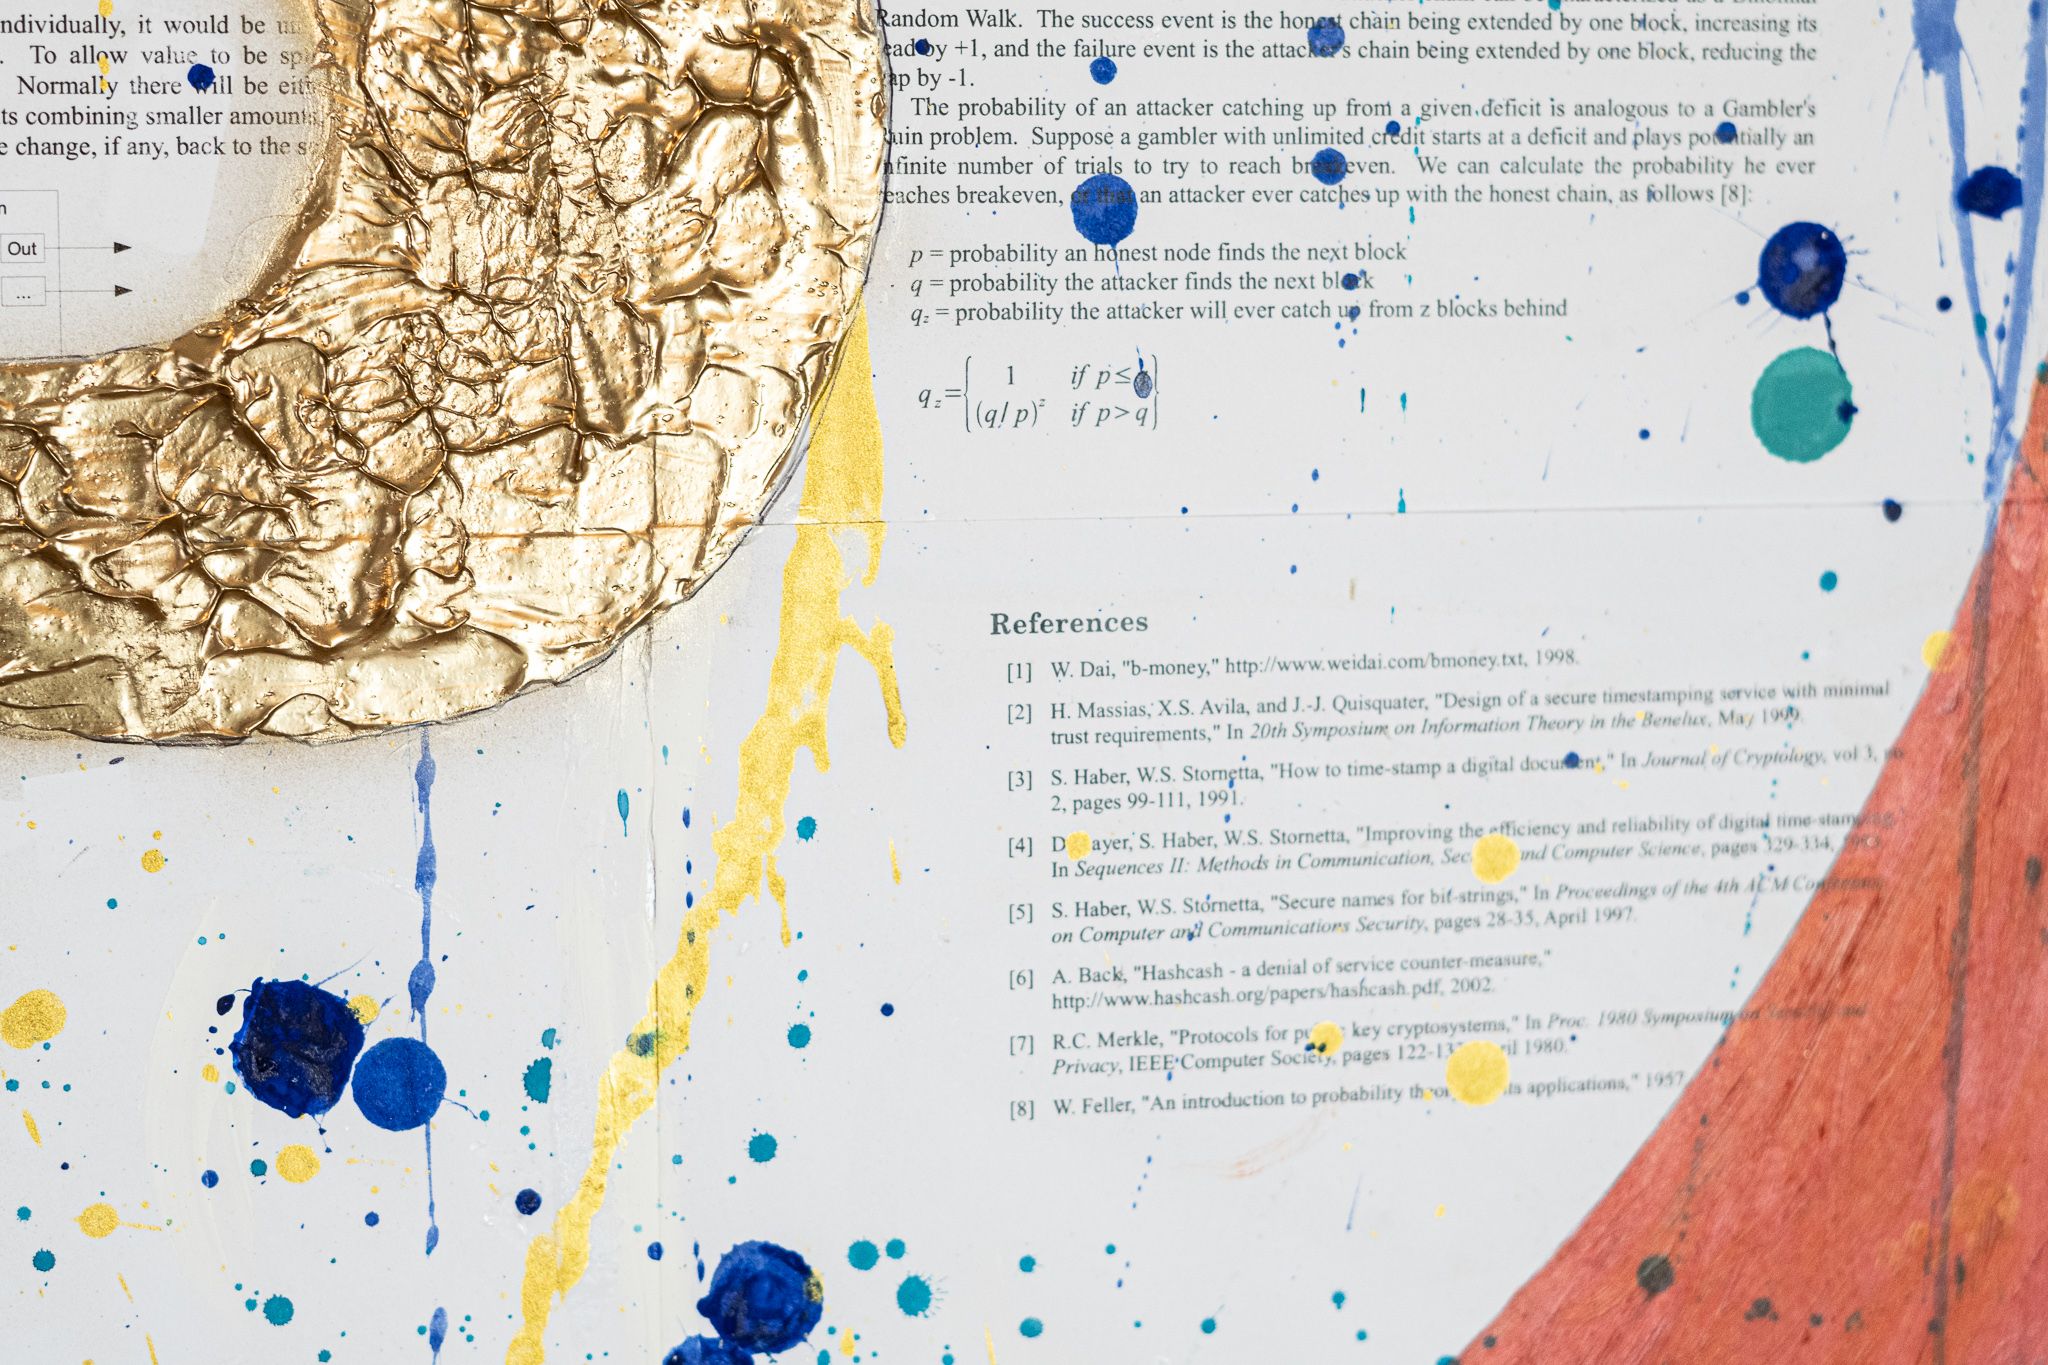 ndividually, it would be
. To allow value to be
Normally there will be
ts combining smaller amounts,
e change, if any, back to the
n
Out
...
Random Walk. The success event is the honest chain being extended by one block, increasing its
ead by +1, and the failure event is the attacker's chain being extended by one block, reducing the
ap by -1.
The probability of an attacker catching up from a given deficit is analogous to a Gambler's
uin problem. Suppose a gambler with unlimited credit starts at a deficit and plays potentially an
nfinite number of trials to try to reach breakeven. We can calculate the probability he ever
eaches breakeven, or that an attacker ever catches up with the honest chain, as follows [8]:
p = probability an honest node finds the next block
q = probability the attacker finds the next block
q_z = probability the attacker will ever catch up from z blocks behind
q_z = { 1 if p ≤ q
(q/p)^z if p > q }
References
[1] W. Dai, "b-money," http://www.weidai.com/bmoney.txt, 1998.
[2] H. Massias, X.S. Avila, and J.-J. Quisquater, "Design of a secure timestamping service with minimal
trust requirements," In 20th Symposium on Information Theory in the Benelux, May 1999.
[3] S. Haber, W.S. Stornetta, "How to time-stamp a digital document," In Journal of Cryptology, vol 3, no
2, pages 99-111, 1991.
[4] D ayer, S. Haber, W.S. Stornetta, "Improving the efficiency and reliability of digital time-stamping,
In Sequences II: Methods in Communication, Sec and Computer Science, pages 329-334, 1993.
[5] S. Haber, W.S. Stornetta, "Secure names for bit-strings," In Proceedings of the 4th ACM Conference
on Computer and Communications Security, pages 28-35, April 1997.
[6] A. Back, "Hashcash - a denial of service counter-measure,"
http://www.hashcash.org/papers/hashcash.pdf, 2002.
[7] R.C. Merkle, "Protocols for public key cryptosystems," In Proc. 1980 Symposium on Security and
Privacy, IEEE Computer Society, pages 122-13 April 1980.
[8] W. Feller, "An introduction to probability theory its applications," 1957